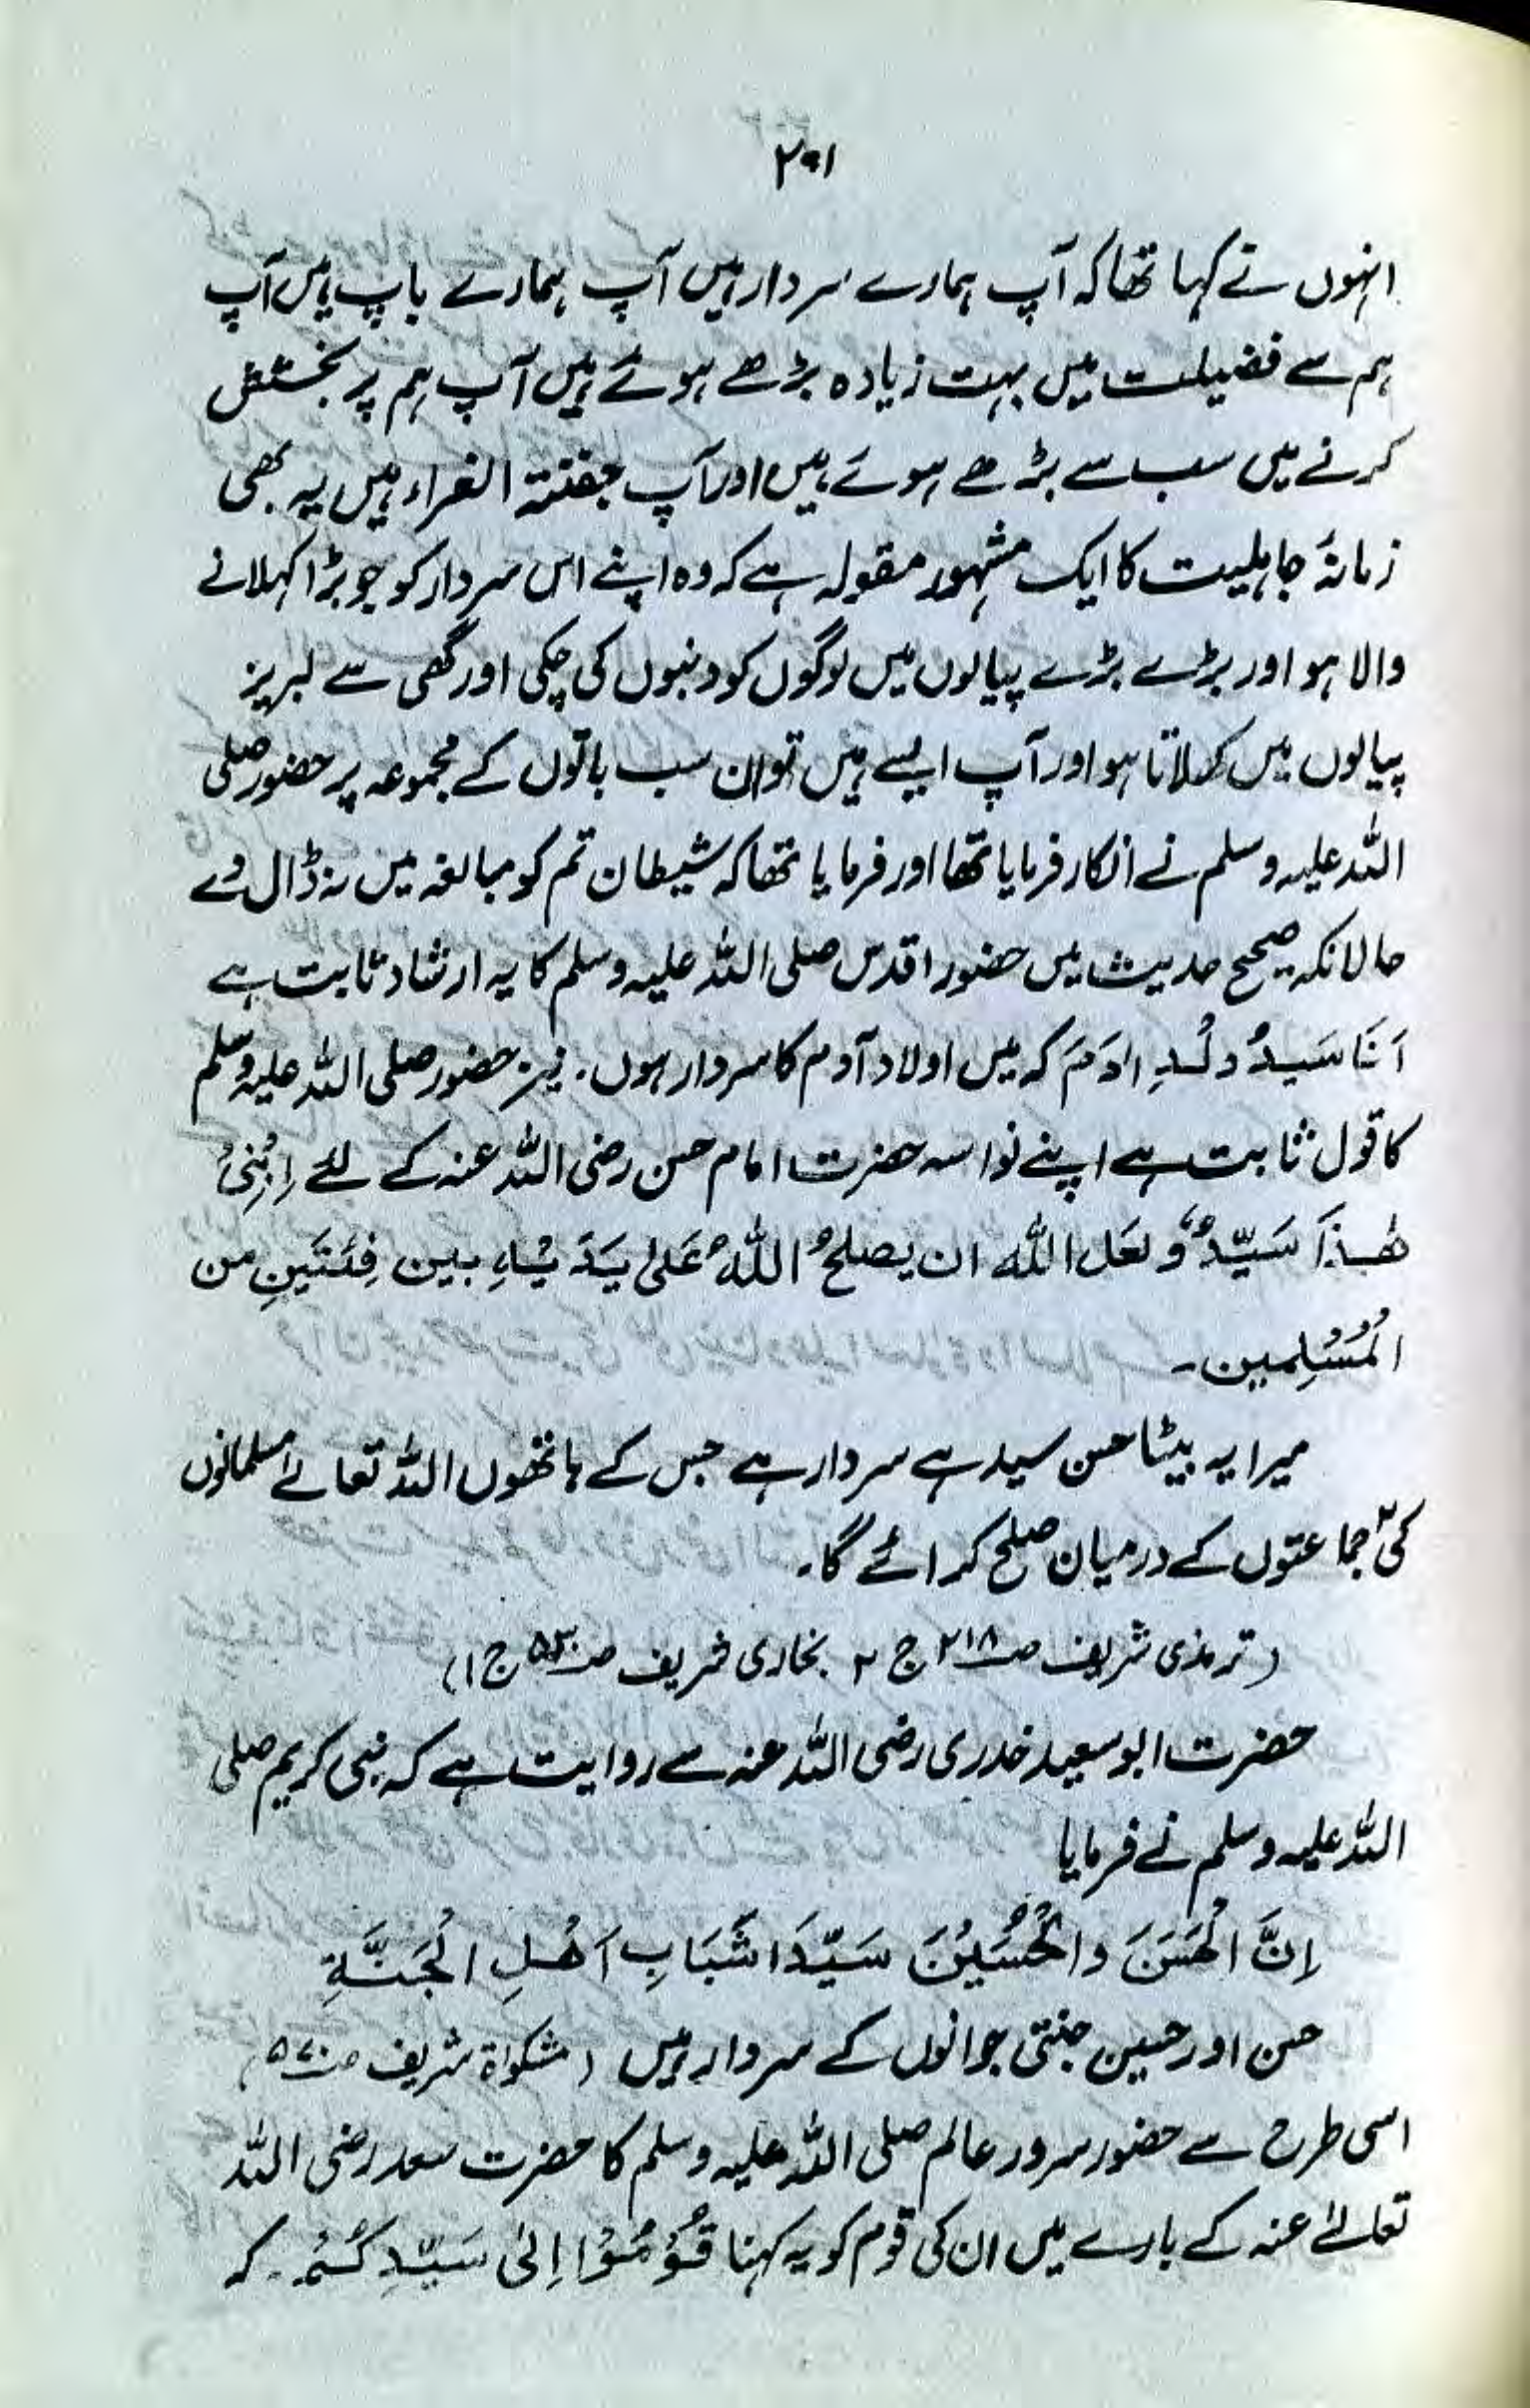 ۲۰۱
انہوں نے کہا تھا کہ آپ ہمارے سردار ہیں آپ ہمارے باپ ہیں آپ
ہم سے فضیلت میں بہت زیادہ بڑھے ہوئے ہیں آپ ہم پر بخشش
کرنے میں سب سے بڑھے ہوئے ہیں اور آپ جفنتہ الغراء ہیں یہ بھی
زمانۂ جاہلیت کا ایک مشہور مقولہ ہے کہ وہ اپنے اس سردار کو جو بڑا کہلانے
والا ہو اور بڑے بڑے پیالوں میں لوگوں کو دنبوں کی چکی اور گھی سے لبریز
پیالوں میں کھلاتا ہو اور آپ ایسے ہیں تو ان سب باتوں کے مجموعہ پر حضور صلی
اللہ علیہ وسلم نے انکار فرمایا تھا اور فرمایا تھا کہ شیطان تم کو مبالغہ میں نہ ڈال دے
حالانکہ صحیح حدیث میں حضور اقدس صلی اللہ علیہ وسلم کا یہ ارشاد ثابت ہے
اَنَا سَیدُ وُلْدِ اٰدَمَ کہ میں اولاد آدم کا سردار ہوں۔ نیز حضور صلی اللہ علیہ وسلم
کا قول ثابت ہے اپنے نواسہ حضرت امام حسن رضی اللہ عنہ کے لئے اِبْنِیْ
ھٰذَا سَیّدٌ وَّلعَل اللّٰہ ان یصلحُ اللّٰہُ عَلیٰ یَدَیْہِ بین فِئَتَینِ من
الْمُسْلِمین۔
میرا یہ بیٹا حسن سید ہے سردار ہے جس کے ہاتھوں اللہ تعالےٰ مسلمانوں
کی ۲ جماعتوں کے درمیان صلح کرائے گا۔
(ترمذی شریف صـ۲۱۸ ج ۲ بخاری شریف صـ۵۳۰ ج ۱)
حضرت ابو سعید خدری رضی اللہ عنہ سے روایت ہے کہ نبی کریم صلی
اللہ علیہ وسلم نے فرمایا
اِنَّ الْحَسَنَ والْحُسَیْنَ سَیّدَا شَبَابِ اَھْلِ الْجَنَّۃِ
حسن اور حسین جنتی جوانوں کے سردار ہیں (مشکوٰۃ شریف صـ۵۷۰)
اسی طرح سے حضور سرور عالم صلی اللہ علیہ وسلم کا حضرت سعد رضی اللہ
تعالےٰ عنہ کے بارے میں ان کی قوم کو یہ کہنا قُوْمُوْا اِلیٰ سَیّدِکُمْ۔ کہ